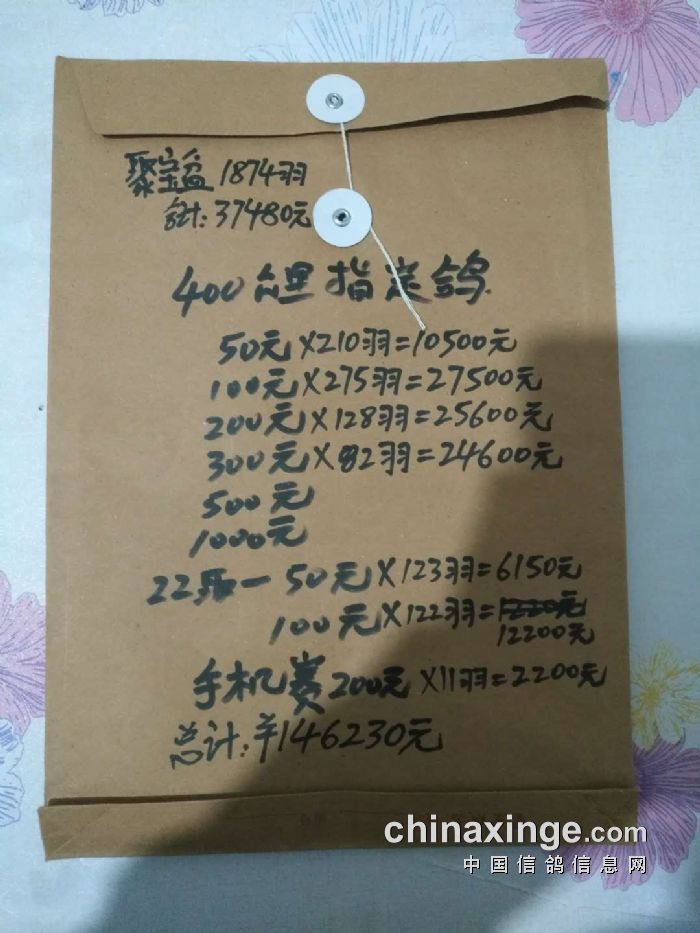 聚宝盆 1874羽
合计：37480元
400公里指定鸽
50元×210羽=10500元
100元×275羽=27500元
200元×128羽=25600元
300元×82羽=24600元
500元
1000元
22取一 50元×123羽=6150元
100元×122羽=1220元
12200元
手机赛 200元×11羽=2200元
总计：￥146230元
chinaxinge.com
中国信鸽信息网